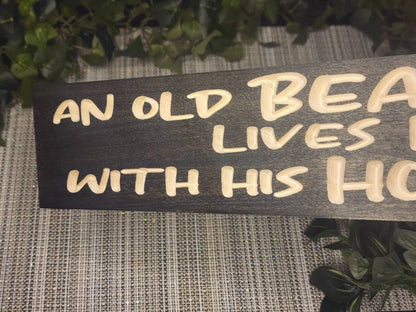 AN OLD BEA
LIVES
WITH HIS HO